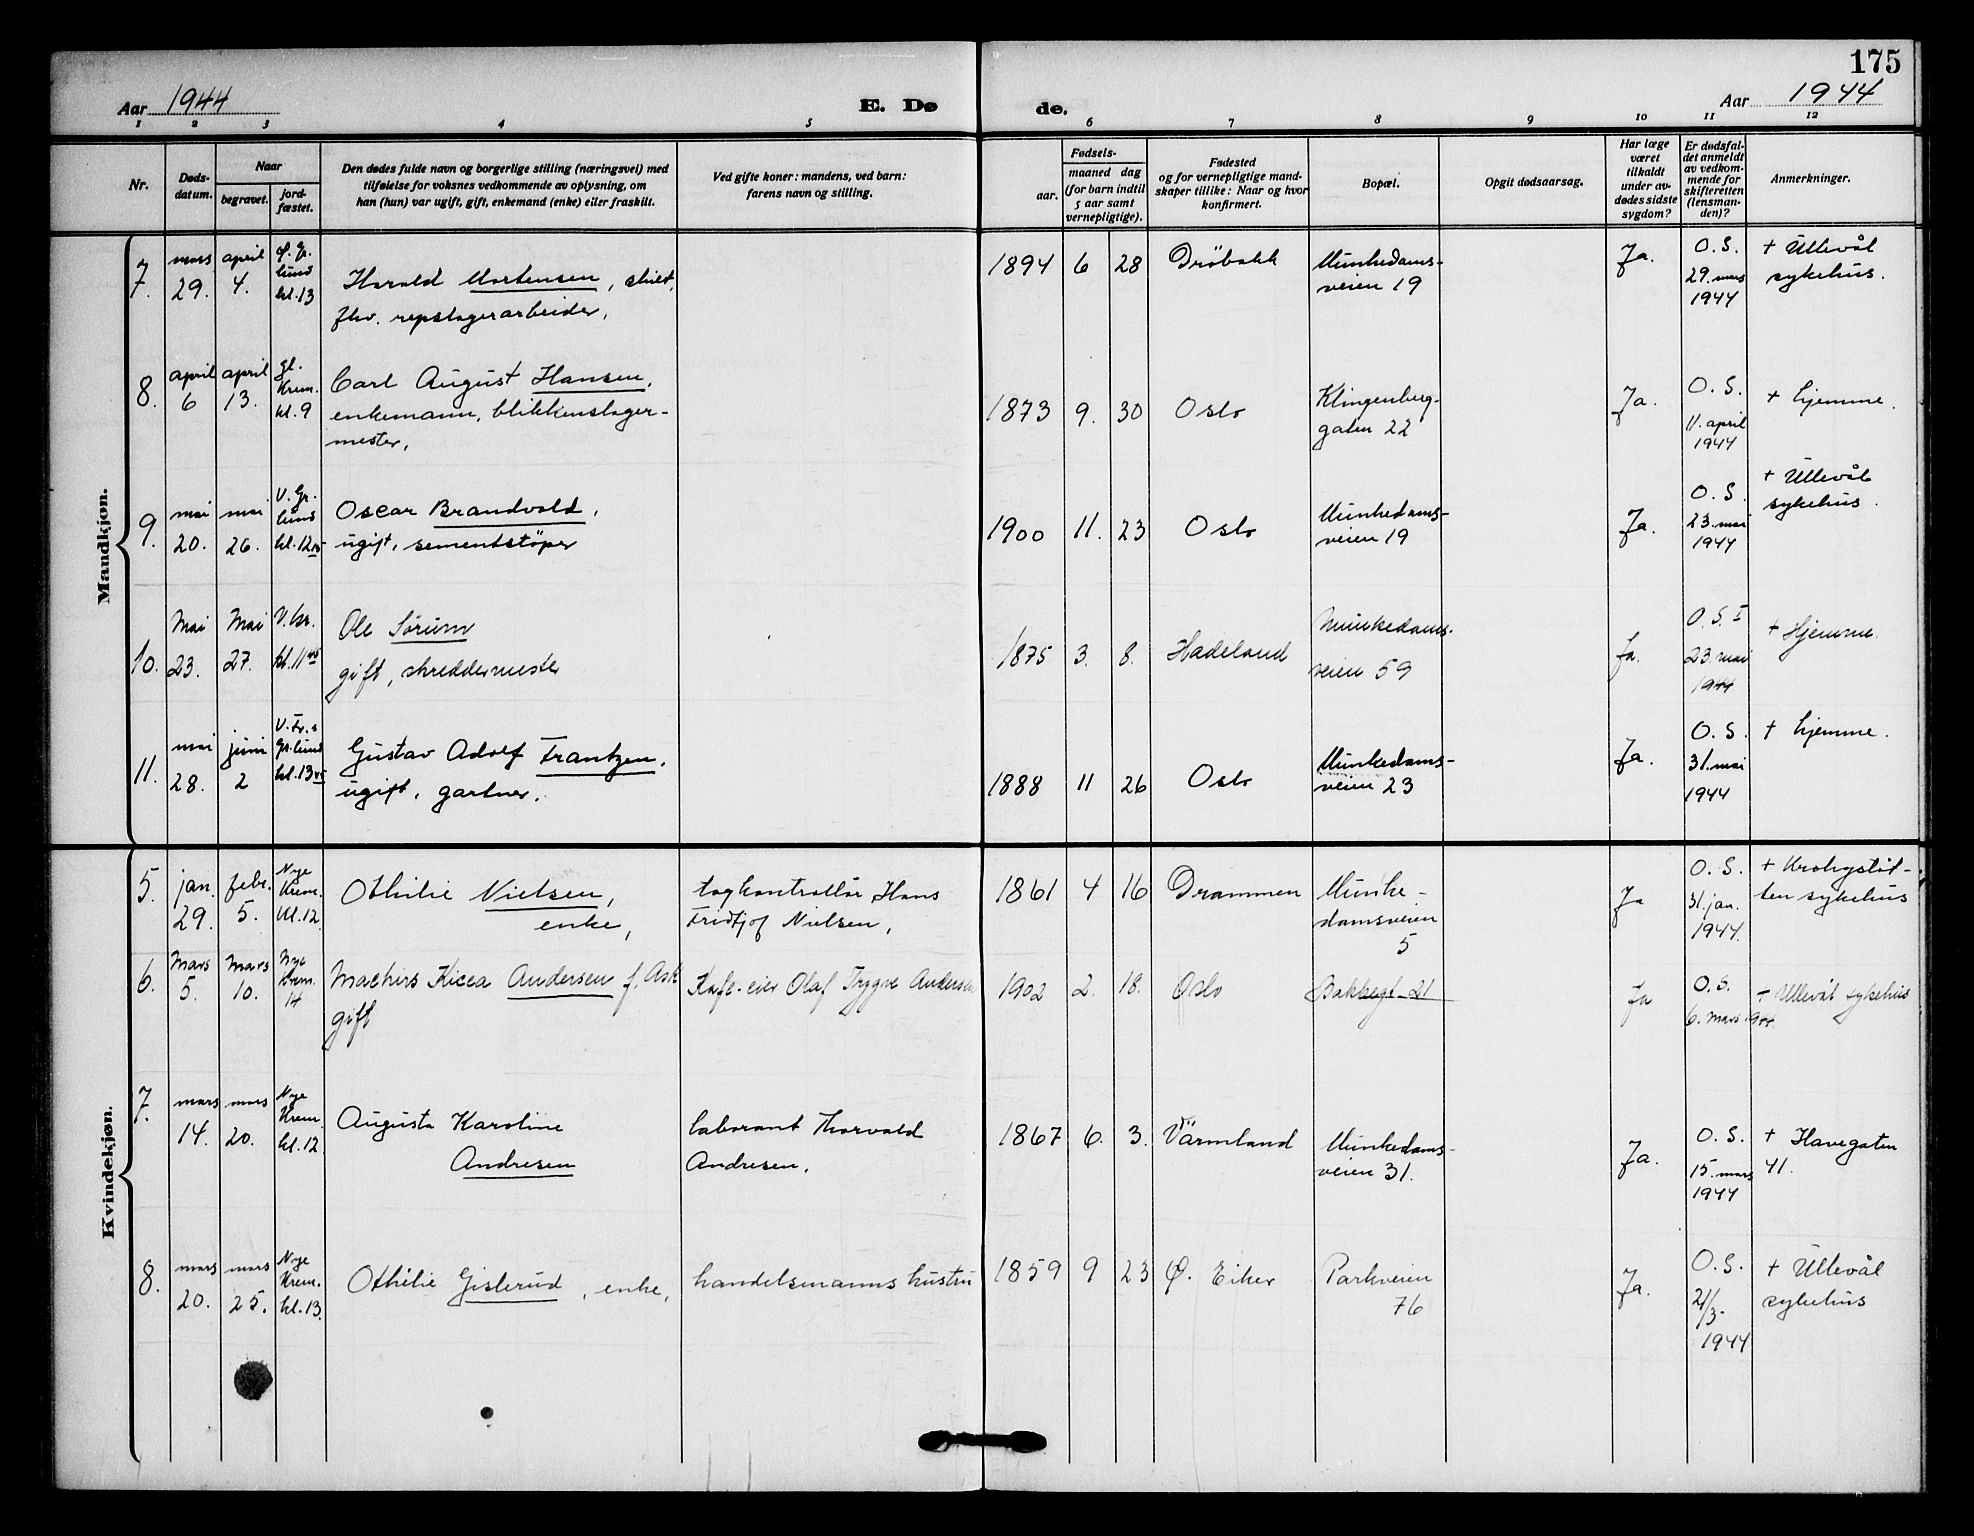 175
Aar 1944
E. Dø de.
Aar 1944
1 2 3 4 5 6 7 8 9 10 11 12
Nr.
Døds-
datum.
Naar
begravet.
jord-
fæstet.
Den dødes fulde navn og borgerlige stilling (næringsvei) med
tilføielse for voksnes vedkommende av oplysning, om
han (hun) var ugift, gift, enkemand (enke) eller fraskilt.
Ved gifte koner: mandens, ved barn:
farens navn og stilling.
Fødsels-
aar.
maaned dag
(for barn indtil
5 aar samt
vernepligtige).
Fødested
og for vernepligtige mand-
skaper tillike: Naar og hvor
konfirmert.
Bopæl.
Opgit dødsaarsag.
Har læge
været
tilkaldt
under av-
dødes sidste
sygdom?
Er dødsfal-
det anmeldt
av vedkom-
mende for
skifteretten
(lensman-
den)?
Anmerkninger.
Mandkjøn.
7.
mars
29.
april
4.
lund
kl. 13
Harald Mortensen, skilt,
fhv. repslagerarbeider,
1894 6 28
Dröbakk
Munkedams-
veien 19
Ja.
O. S.
29. mars
1944
+ Ullevål
sykehus.
8.
april
6
april
13.
gl.
Krem.
kl. 9
Carl August Hansen,
enkemann, blikkenslager-
mester,
1873 9. 30
Oslo
Klingenberg-
gaten 22
Ja.
O. S.
11. april
1944
+ hjemme.
9.
mai
20.
mai
26.
V. Gr.
lund
kl. 12 15
Oscar Brandvold,
ugift, sementstöper
1900 11. 23
Oslo
Munkedams-
veien 19
Ja.
O. S.
23. mai
1944
+ Ullevål
sykehus.
10.
Mai
23.
Mai
27.
V. Gr.
kl. 11 45
Ole Sörum
gift, skreddermester
1875 3. 8.
Hadeland
Munkedams-
veien 59
Ja.
O. S. I
23. mai
1944
+ Hjemme.
11.
mai
28.
juni
2
V. Fr.s
Gr.lund
kl. 13 45
Gustav Adolf Frantzen,
ugift, gartner.
1888 11 26
Oslo
Munkedams-
veien 23
Ja.
O. S.
31. mai
1944
+ hjemme.
Kvindekjøn.
5.
jan.
29.
febr.
5.
Nye
Krem.
kl. 12
Othilie Nielsen,
enke,
togkontrollör Hans
Fridtjof Nielsen,
1861 4 16
Drammen
Munke-
damsveien
5
Ja
O. S.
31. jan.
1944.
+ Krohgstöt-
ten sykehus
6.
Mars
5.
Mars
10.
Nye
Krem.
14
Andersen f. Ask
gift
Kafe-eier Olaf Trygve Andersen
1902 2. 18.
Oslo
Bakkegt. 21
Ja
O. S.
6. mars 1944.
+ Ullevål sykehus
7.
mars
14.
mars
20.
Nye
Krem.
kl. 12
Augusta Karoline
Andresen
laborant Thorvald
Andresen.
1867 6. 3.
Värmland
Munkedams-
veien 31.
Ja.
O. S.
15. mars
1944
+ Havegaten
41.
8.
mars
20.
mars
25.
Nye
Krem.
kl. 13.
Othilie Gislerud, enke,
handelsmanns hustru
1859 9 23
Ø. Eiker
Parkveien
76
Ja.
O. S.
21/3-
1944
+ Ullevål
sykehus